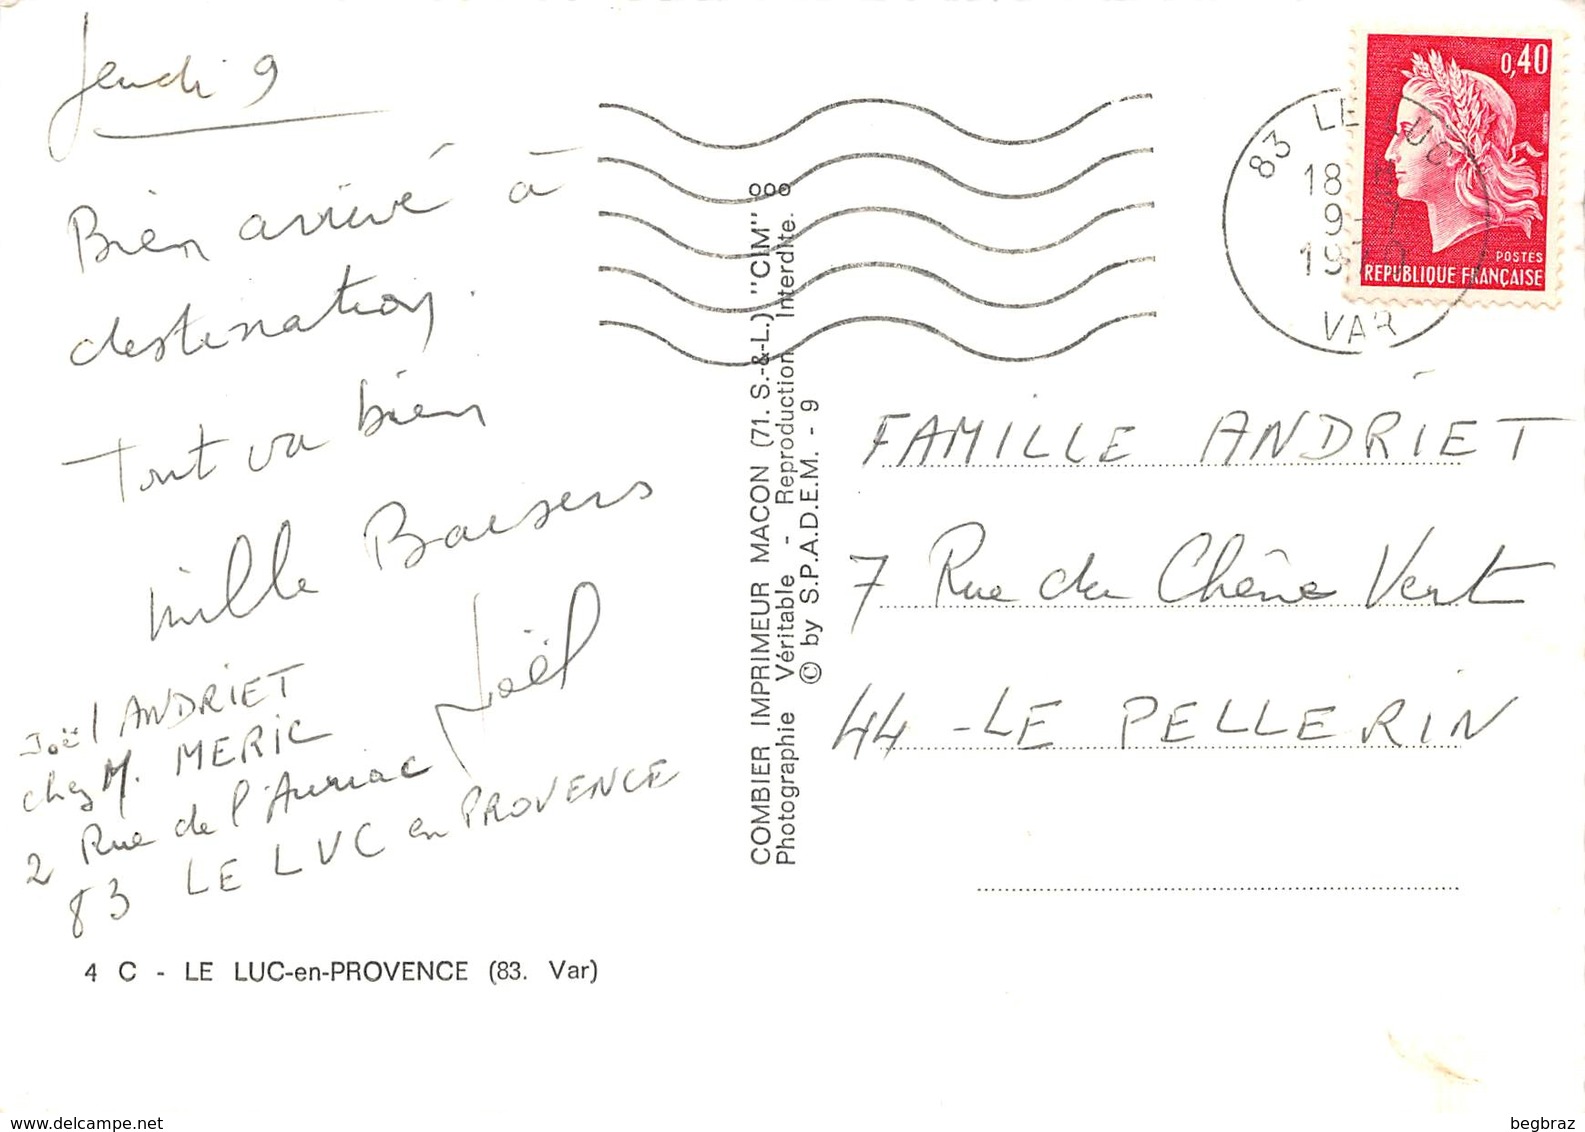 Jeudi 9
Bien arrivé à
destination.
Tout va bien
Mille Baisers
Joël
Joël ANDRIET
chez M. MERIC
2 Rue de l'Auriac
83 LE LUC en PROVENCE
4 C - LE LUC-en-PROVENCE (83. Var)
COMBIER IMPRIMEUR MACON (71. S.-&-L.) "CIM"
Photographie Véritable - Reproduction Interdite.
© by S.P.A.D.E.M. - 9
0,40
POSTES
REPUBLIQUE FRANÇAISE
83 LE LUC
18
9-7
1970
VAR
FAMILLE ANDRIET
7 Rue du Chêne Vert
44 - LE PELLERIN
www.delcampe.net
begbraz